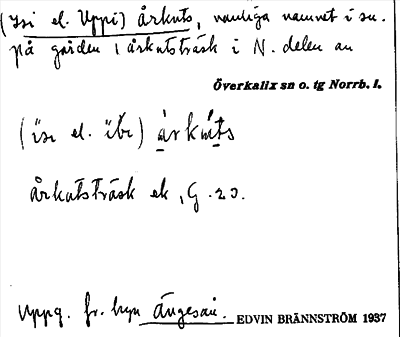 (Isi el. Uppi) årkuts, vanliga namnet i sn.
på gården 1 årkutsträsk i N. delen av
Överkalix sn o. tg Norrb. l.
(isi el. ubi) årkuts
årkutsträsk ek, G. 23.
Uppg. fr. byn Ängesån. EDVIN BRÄNNSTRÖM 1937